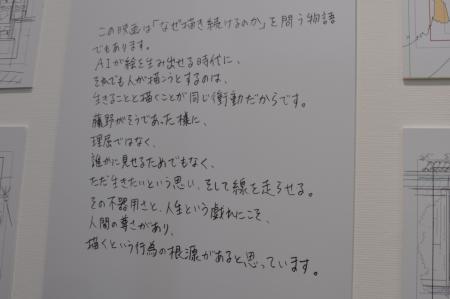 この映画は「なぜ描き続けるのか」を問う物語
でもあります。
AIが絵を生み出せる時代に、
それでも人が描こうとするのは、
生きることと描くことが同じ衝動だからです。
藤野がそうであった様に、
理屈ではなく、
誰かに見せるためでもなく、
ただ生きたいという思い、そして線を走らせる。
その不器用さと、人生という戯れにこそ、
人間の尊さがあり、
描くという行為の根源があると思っています。